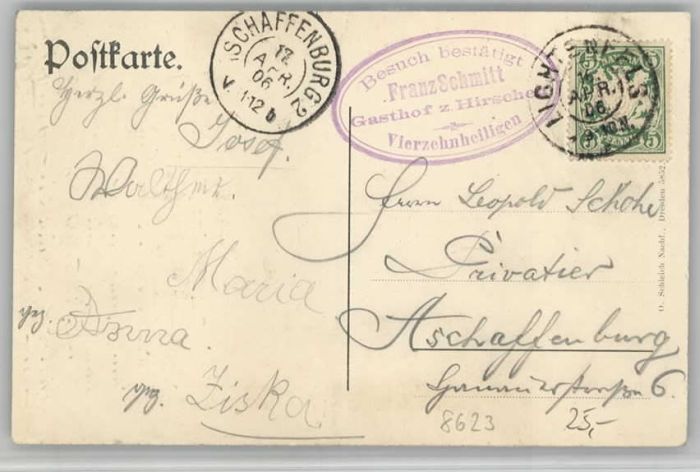 Postkarte.
ASCHAFFENBURG 2
12
APR.
06
V. 11-12 b
Besuch bestätigt
Franz Schmitt
Gasthof z. Hirschen
Vierzehnheiligen
APR.
06
5 5
Herzl. Grüße
Josef.
Walther.
Maria
Anna.
Ziska.
Herrn Leopold
Privatier
Aschaffenburg
Hanauerstraße 6.
O. Schleich Nachf., Dresden 5852.
8623
25,-